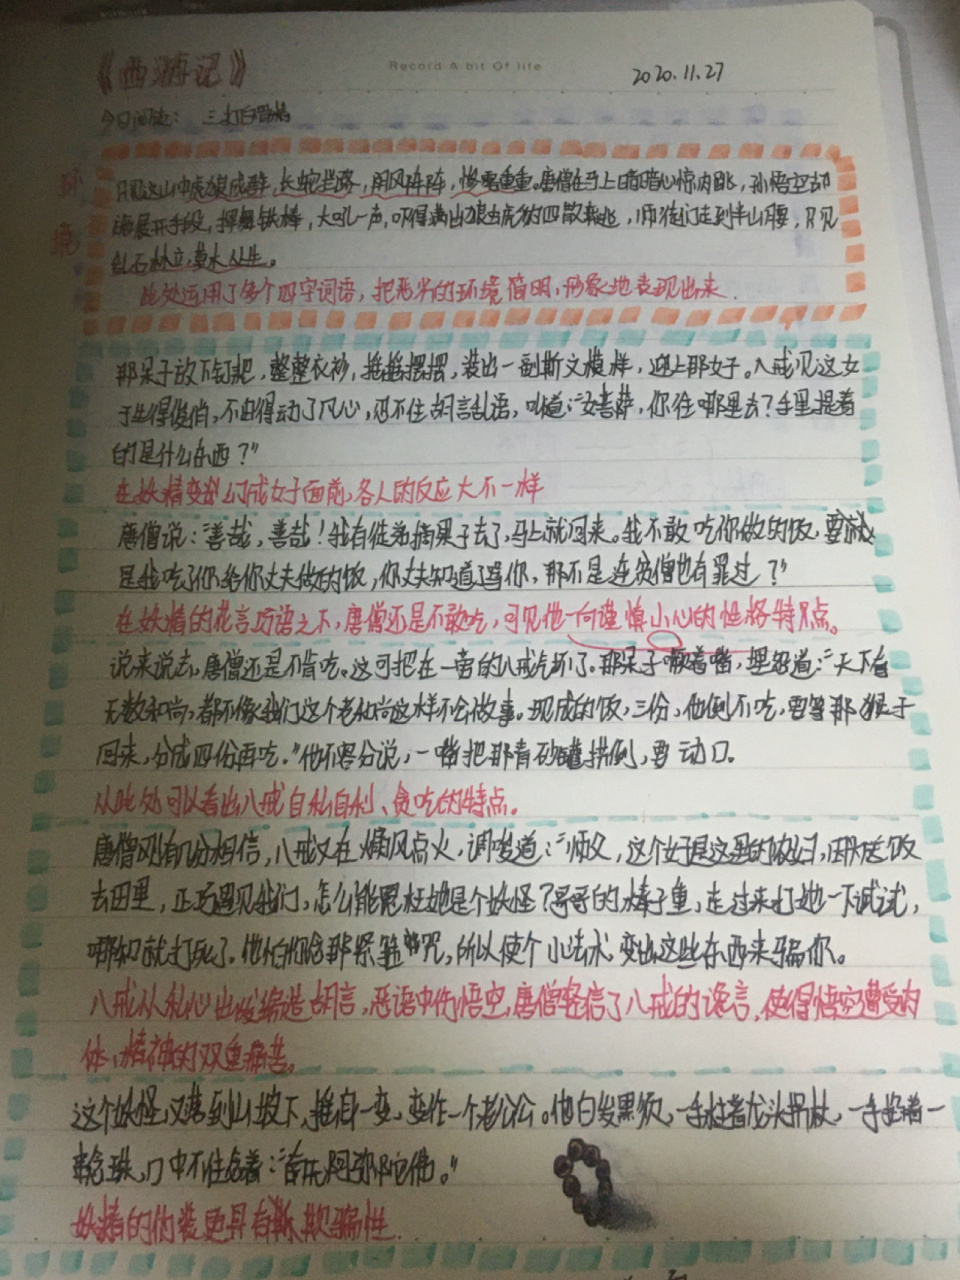 《西游记》
Record A bit Of life
2020.11.27
今日阅读： 三打白骨精
环
境
只见这山中虎狼成群，长蛇挡路，阴风阵阵，惨雾重重。唐僧在马上暗暗心惊肉跳，孙悟空却
施展开手段，挥舞铁棒，大吼一声，吓得满山狼虫虎豹四散奔逃，师徒们走到半山腰，只见
乱石林立，草木丛生。
此处运用了多个四字词语，把恶劣的环境简明，形象地表现出来.
那呆子放下钉耙，整整衣衫，摇摇摆摆，装出一副斯文模样，迎上那女子。八戒见这女
子生得俊俏，不由得动了凡心，忍不住胡言乱语，叫道：“女菩萨，你往哪里去？手里提着
的是什么东西？”
在妖精变幻成女子面前，各人的反应大不一样
唐僧说：“善哉，善哉！我有徒弟摘果子去了，马上就回来。我不敢吃你做的饭，要
是我吃了你给你丈夫做的饭，你丈夫知道了骂你，那不是连贫僧也有罪过？”
在妖精的花言巧语之下，唐僧还是不敢吃，可见他一向谨慎小心的性格特点。
说来说去，唐僧还是不肯吃。这可把在一旁的八戒气坏了。那呆子噘着嘴，埋怨道：“天下有
无数和尚，都不像我们这个老和尚这样不会做事。现成的饭，三份，他倒不吃，要等那猴子
回来，分成四份再吃。”他不容分说，一嘴把那青砂罐拱倒，要动口。
从此处可以看出八戒自私自利、贪吃的特点。
唐僧刚有几分相信，八戒又在煽风点火，调唆道：“师父，这个女子是这里的农妇，因为送饭
去田里，正巧遇见我们，怎么能冤枉她是个妖怪？哥哥的棒子重，走过来打她一下试试，
哪知就打死了。他怕你念那紧箍咒，所以使个小法术，变出这些东西来骗你。
八戒从私心出发编造胡言，恶语中伤悟空，唐僧轻信了八戒的谗言，使得悟空遭受肉
体、精神的双重痛苦。
这个妖怪又落到山坡下，摇身一变，变作一个老公公。他白发黑须，一手拄着龙头拐杖，一手捻着一
串念珠，口中不住念着：“南无阿弥陀佛。”
妖精的伪装更具有欺骗性.